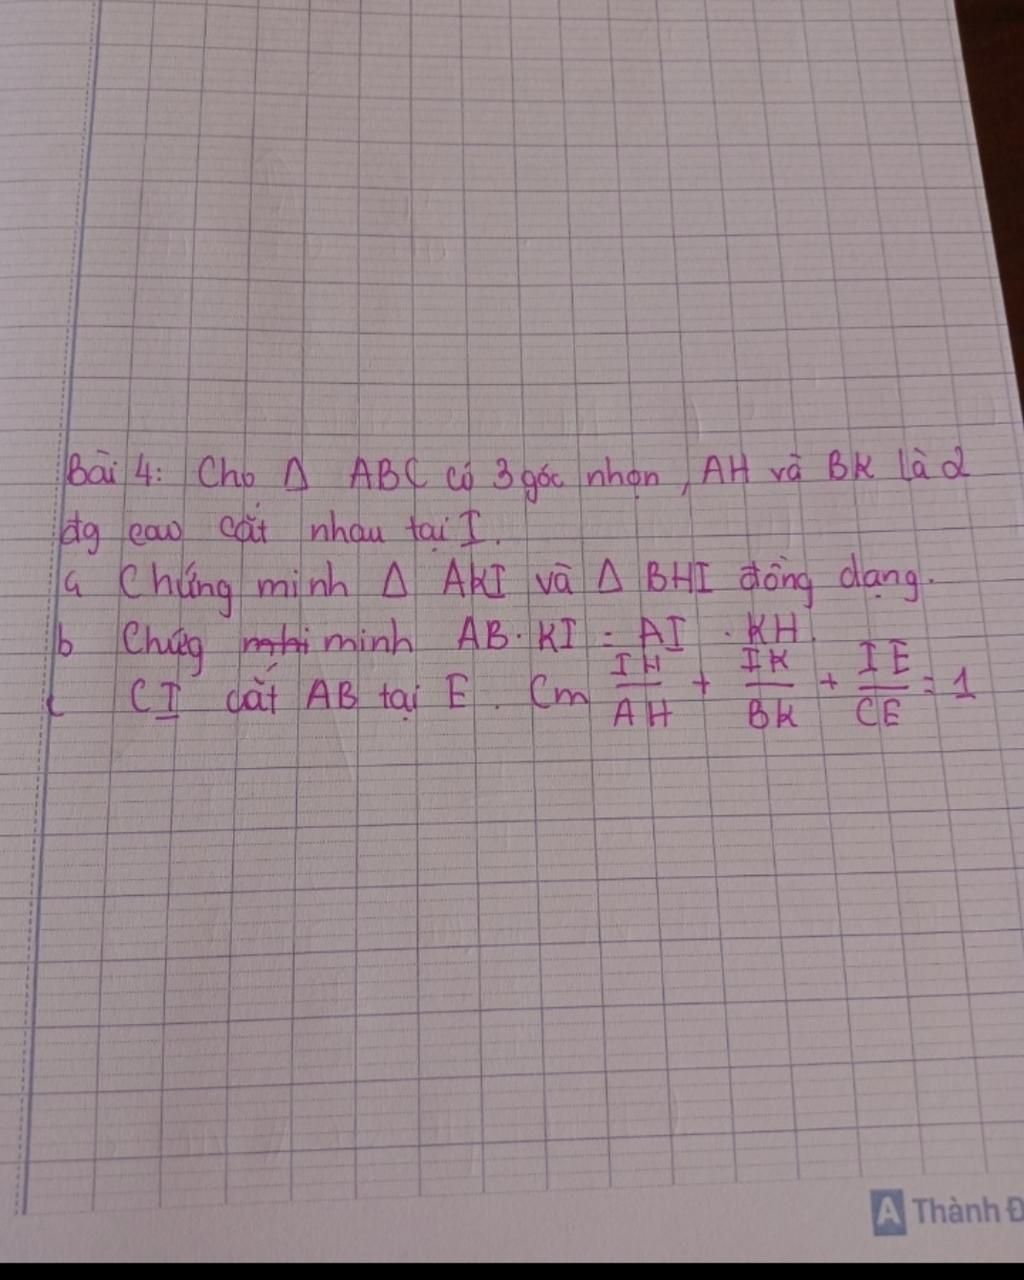 Bài 4: Cho Δ ABC có 3 góc nhọn, AH và BK là 2
đg cao cắt nhau tại I.
a Chứng minh Δ AKI và Δ BHI đồng dạng.
b Chứg minh AB. KI = AI . KH.
c CI cắt AB tại E. Cm IH/AH + IK/BK + IE/CE = 1
A Thành Đ